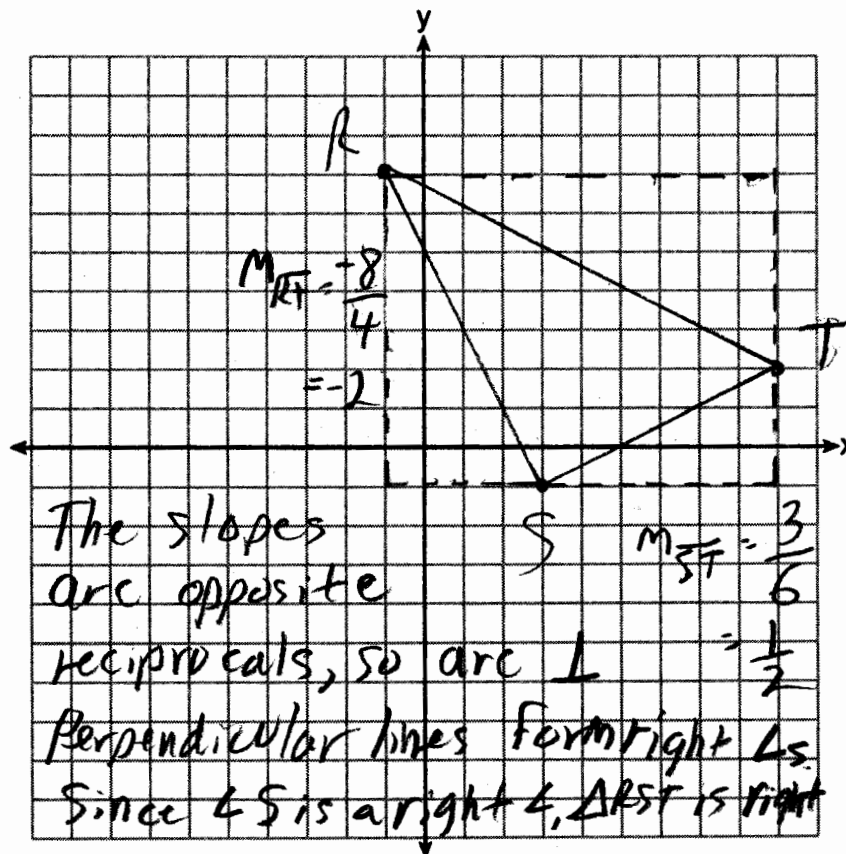 y
R
m RT = -8/4
= -2
T
x
S
m ST = 3/6
= 1/2
The slopes
are opposite
reciprocals, so are ⊥
Perpendicular lines form right ∠s
Since ∠S is a right ∠, △RST is right